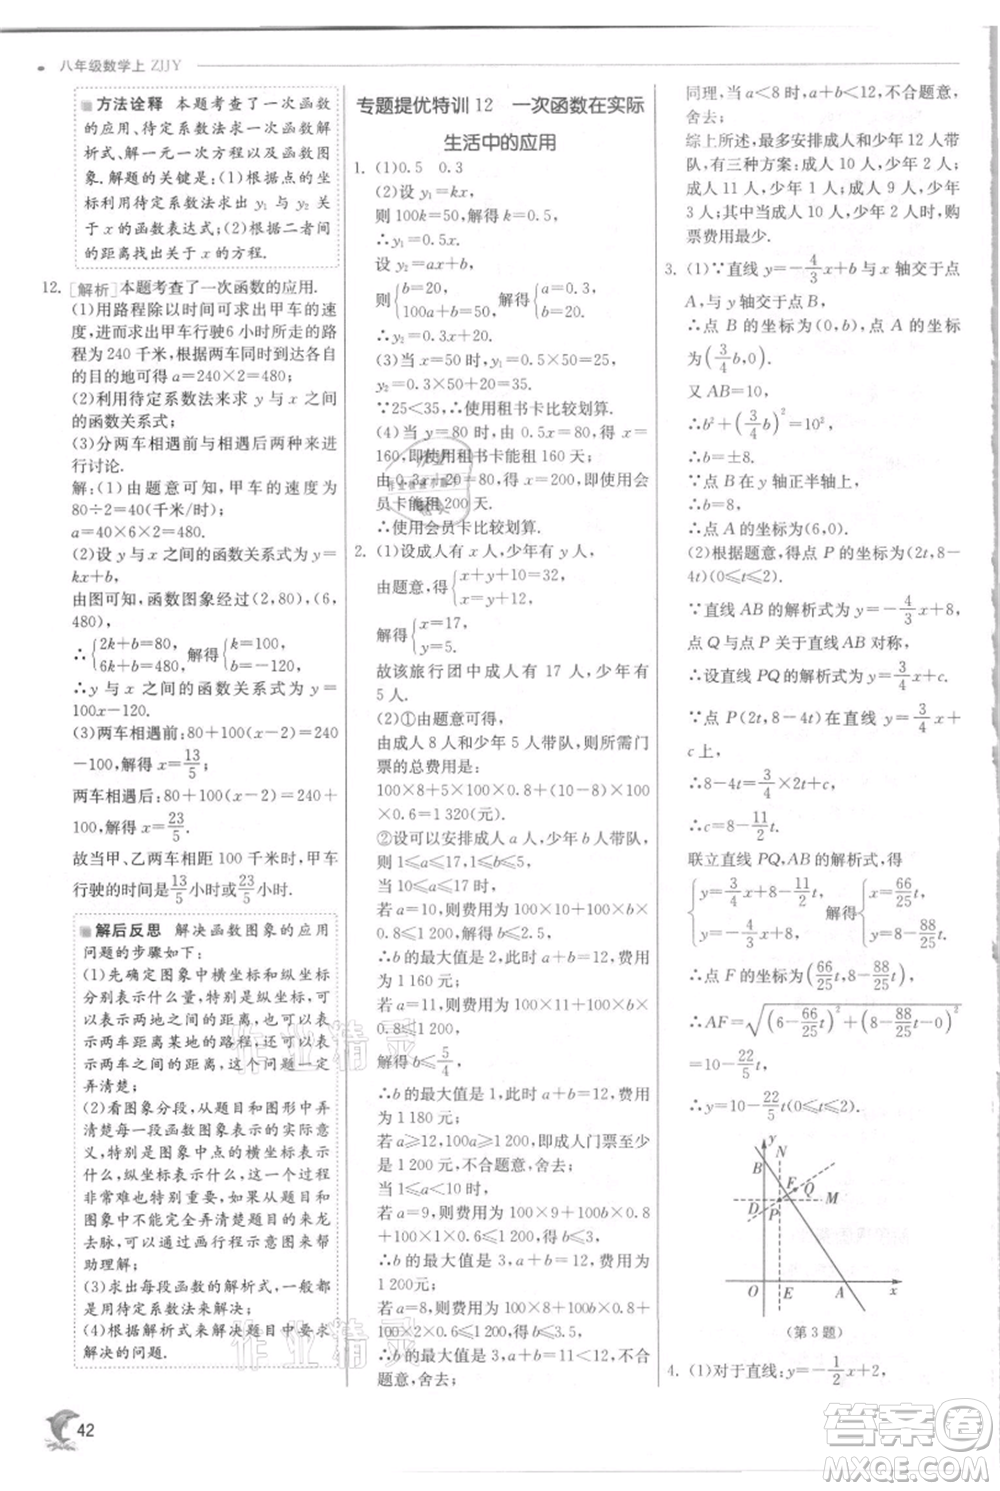 八年级数学上 ZJJY
方法诠释 本题考查了一次函数
的应用、待定系数法求一次函数解
析式、解一元一次方程以及函数图
象.解题的关键是:(1)根据点的坐
标利用待定系数法求出 y₁ 与 y₂ 关
于 x 的函数表达式;(2)根据二者间
的距离找出关于 x 的方程.
12. [解析]本题考查了一次函数的应用.
(1)用路程除以时间可求出甲车的速
度,进而求出甲车行驶6小时所走的路
程为 240 千米,根据两车同时到达各自
的目的地可得 a=240×2=480;
(2)利用待定系数法来求 y 与 x 之间
的函数关系式;
(3)分两车相遇前与相遇后两种来进
行讨论.
解:(1)由题意可知,甲车的速度为
80÷2=40(千米/时);
a=40×6×2=480.
(2)设 y 与 x 之间的函数关系式为 y=
kx+b,
由图可知,函数图象经过(2,80),(6,
480),
∴{2k+b=80, 6k+b=480, 解得{k=100, b=-120.
∴y 与 x 之间的函数关系式为 y=
100x-120.
(3)两车相遇前:80+100(x-2)=240
-100,解得 x=13/5;
两车相遇后:80+100(x-2)=240+
100,解得 x=23/5.
故当甲、乙两车相距 100 千米时,甲车
行驶的时间是13/5小时或23/5小时.
解后反思 解决函数图象的应用
问题的步骤如下:
(1)先确定图象中横坐标和纵坐标
分别表示什么量,特别是纵坐标,可
以表示两地之间的距离,可以表示
两车距离某地的路程,还可以表示
两车之间的距离,一定要审题,弄
弄清楚;
(2)看图象分段,找出图和图形中并
弄清楚每一段函数表示的实际意
义,特别是图象中的点的坐标表示
什么,纵坐标表示什么,横坐标表示
什么,特别是交点和转折点,这一点
非常难也特别重要,需要结合条件
完全弄清楚每一段的图象的来龙
去脉,可以通过画行程示意图来帮
助理解;
(3)求出每段函数的解析式,主要利
用待定系数法来解决;
(4)根据解析式来解决题目要求解
决的问题.
42
专题提优特训 12 一次函数在实际
生活中的应用
1. (1)0.5 0.3
(2)设 y₁=kx,
则 100k=50,解得 k=0.5,
∴y₁=0.5x.
设 y₂=ax+b,
则{b=20, 100a+b=50, 解得{a=0.3, b=20.
∴y₂=0.3x+20.
(3)当 x=50 时,y₁=0.5×50=25,
y₂=0.3×50+20=35.
∵25<35,∴使用租书卡比较划算.
(4)当 y=80 时,由 0.5x=80 得 x=
160,即使用租书卡能租 160 天;
由 0.3x+20=80 得 x=200,即使用会
员卡能租 200 天.
∴使用会员卡比较划算.
2. (1)设成人有 x 人,少年有 y 人.
由题意,得{x+y+10=32, x=y+12,
解得{x=17, y=5.
故该旅行团中成人有 17 人,少年有
5 人.
(2)①由题意可得,
由成人 8 人和少年 5 人带队,则所需门
票的总费用是:
100×8+5×100×0.8+(10-8)×100
×0.6=1 320(元).
②设可以安排成人 a 人,少年 b 人带队,
则 1≤a≤17,1≤b≤5.
当 10≤a≤17 时,
若 a=10,则费用为 100×10+100×b×
0.8≤1 200,解得 b≤2.5,
∴b 的最大值是 2,此时 a+b=12,费用
为 1 160 元;
若 a=11,则费用为 100×11+100×b×
0.8≤1 200,
解得 b≤5/4,
∴b 的最大值是 1,此时 a+b=12,费用
为 1 180 元;
若 a≥12,100a≥1 200,即成人门票至少
是 1 200 元,不合题意,舍去;
当 1≤a<10 时,
若 a=9,则费用为 100×9+100b×0.8+
100×1×0.6≤1 200,解得 b≤3,
∴b 的最大值是 3,a+b=12,费用为
1 200元;
若 a=8,则费用为 100×8+100b×0.8+
100×2×0.6≤1 200,解得b≤3.5,
∴b 的最大值是 3,a+b=11<12,不合
题意,舍去;
同理,当 a<8 时,a+b<12,不合题意,
舍去;
综上所述,最多安排成人和少年 12 人带
队,有三种方案:成人 10 人,少年 2 人;
成人 11 人,少年 1 人;成人 9 人,少年
3 人;其中当成人 10 人,少年 2 人时,购
票费用最少.
3. (1)∵直线 y=-4/3x+b 与 x 轴交于点
A,与 y 轴交于点 B,
∴点 B 的坐标为(0,b),点 A 的坐标
为(3/4b,0).
又 AB=10,
∴b²+(3/4b)²=10²,
∴b=±8.
∵点 B 在 y 轴正半轴上,
∴b=8,
∴点 A 的坐标为(6,0).
(2)根据题意,得点 P 的坐标为(2t,8-
4t)(0≤t≤2).
∵直线 AB 的解析式为 y=-4/3x+8,
点 Q 与点 P 关于直线 AB 对称,
∴设直线 PQ 的解析式为 y=3/4x+c.
∵点 P(2t,8-4t)在直线 y=3/4x+
c上,
∴8-4t=3/4×2t+c,
∴c=8-11/2t.
联立直线 PQ,AB 的解析式,得
{y=3/4x+8-11/2t, y=-4/3x+8, 解得{x=66/25t, y=8-88/25t.
∴点 F 的坐标为(66/25t,8-88/25t),
∴AF=√((6-66/25t)²+(8-88/25t-0)²)
=10-22/5t,
∴y=10-22/5t(0≤t≤2).
y
N
B
F
Q
D
P
M
O
E
A
x
(第 3 题)
4. (1)对于直线:y=-1/2x+2,
作业精灵
作业精灵
答案圈
MXQE.COM